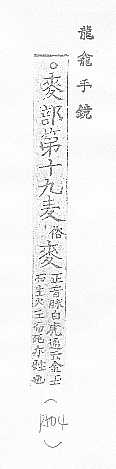 龍龕手鏡
○麥部第十九麦俗麥正音脉白虎通云金王
而生火王而死亦姓也
(1404)